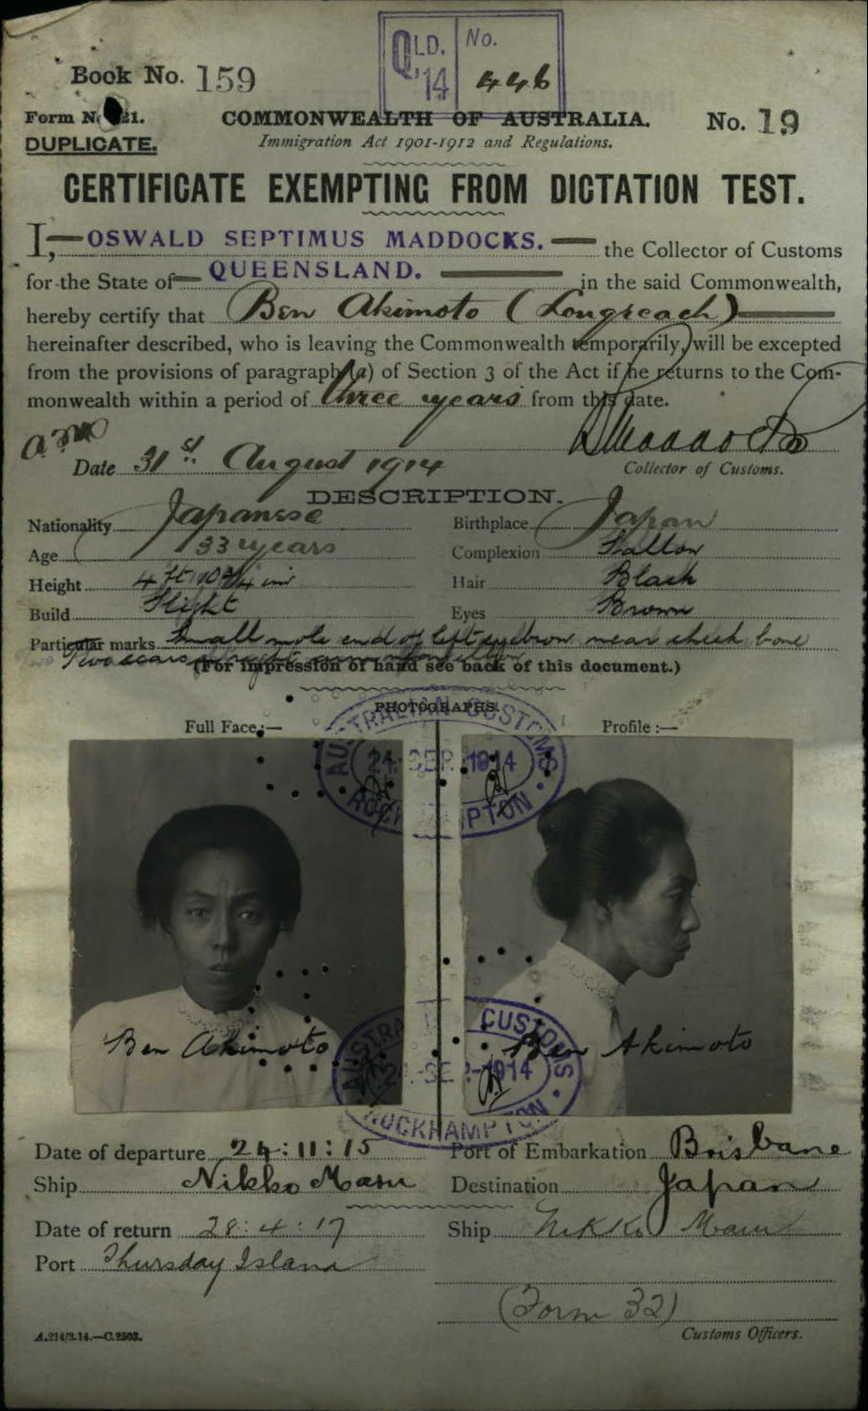 QLD. No.
'14 446
Book No. 159
Form No. 21. COMMONWEALTH OF AUSTRALIA. No. 19
DUPLICATE. Immigration Act 1901-1912 and Regulations.
CERTIFICATE EXEMPTING FROM DICTATION TEST.
I, OSWALD SEPTIMUS MADDOCKS. the Collector of Customs
for the State of QUEENSLAND. in the said Commonwealth,
hereby certify that Ben Akimoto (Longreach)
hereinafter described, who is leaving the Commonwealth temporarily, will be excepted
from the provisions of paragraph (a) of Section 3 of the Act if he returns to the Com-
monwealth within a period of three years from this date.
Date 31st August 1914 Collector of Customs.
DESCRIPTION.
Nationality Japanese Birthplace Japan
Age 33 years Complexion Sallow
Height 4 ft 10 3/4 in Hair Black
Build Slight Eyes Brown
Particular marks Small mole end of left eyebrow near cheek bone
Two scars
(For impression of hand see back of this document.)
PHOTOGRAPHS.
Full Face:— Profile :—
AUSTRALIAN CUSTOMS
24 SEP 1914
ROCKHAMPTON
Ben Akimoto Ben Akimoto
AUSTRALIAN CUSTOMS
24 SEP 1914
ROCKHAMPTON
Date of departure 24:11:15 Port of Embarkation Brisbane
Ship Nikko Maru Destination Japan
Date of return 28:4:17 Ship Nikko Maru
Port Thursday Island
(Form 32)
A.214/3.14.—C.2503. Customs Officers.